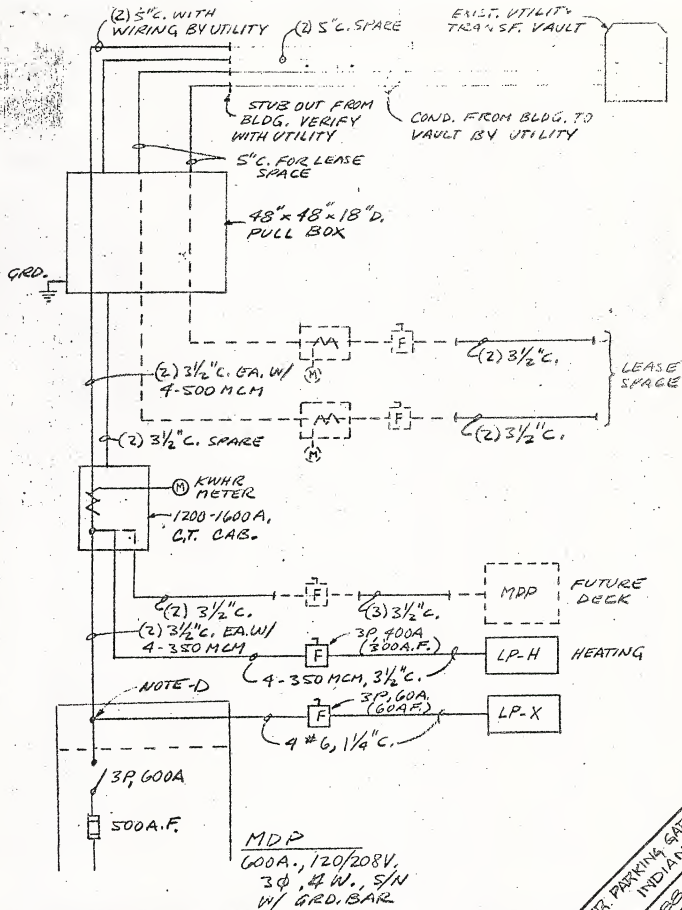 (2) 5"C. WITH
WIRING BY UTILITY
(2) 5"C. SPARE
EXIST. UTILITY
TRANSF. VAULT
STUB OUT FROM
BLDG. VERIFY
WITH UTILITY
COND. FROM BLDG. TO
VAULT BY UTILITY
5"C. FOR LEASE
SPACE
48"x 48"x 18"D.
PULL BOX
GRD.
F
(2) 3½"C.
M
LEASE
SPACE
(2) 3½"C. EA. W/
4-500 MCM
F
(2) 3½"C.
M
(2) 3½"C. SPARE
M
KWHR
METER
1200-1600A,
C.T. CAB.
(2) 3½"C.
F
(3) 3½"C.
MDP
FUTURE
DECK
(2) 3½"C. EA. W/
4-350 MCM
3P, 400A
(300A.F.)
F
4-350 MCM, 3½"C.
LP-H
HEATING
NOTE-D
3P, 60A.
(60A.F.)
F
4 #6, 1¼"C.
LP-X
3P, 600A
500A.F.
MDP
600A., 120/208V.
3Ø, 4 W., S/N
W/ GRD. BAR
R. PARKING GA
INDIAN